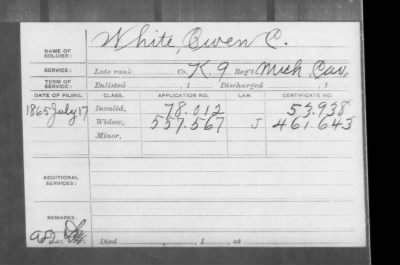 NAME OF SOLDIER: White, Owen C.
SERVICE: Late rank Co. K. 9 Reg't Mich. Cav.
TERM OF SERVICE: Enlisted , 1 Discharged , 1
DATE OF FILING. CLASS. APPLICATION NO. LAW. CERTIFICATE NO.
1865 July 17 Invalid, 78.012 53.938
Widow, 557.567 J 461.643
Minor,
ADDITIONAL SERVICES:
REMARKS:
Died , 1 , at